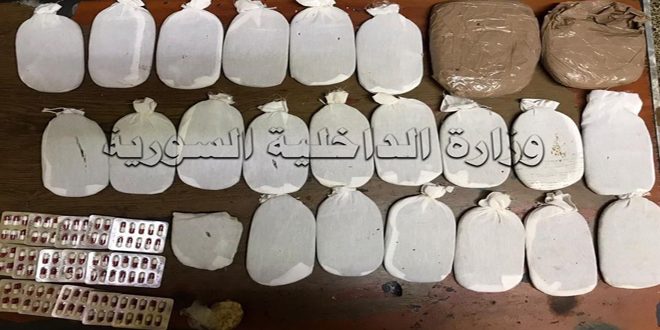 وزارة الداخلية السورية